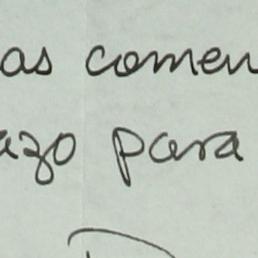 as comen
azo para